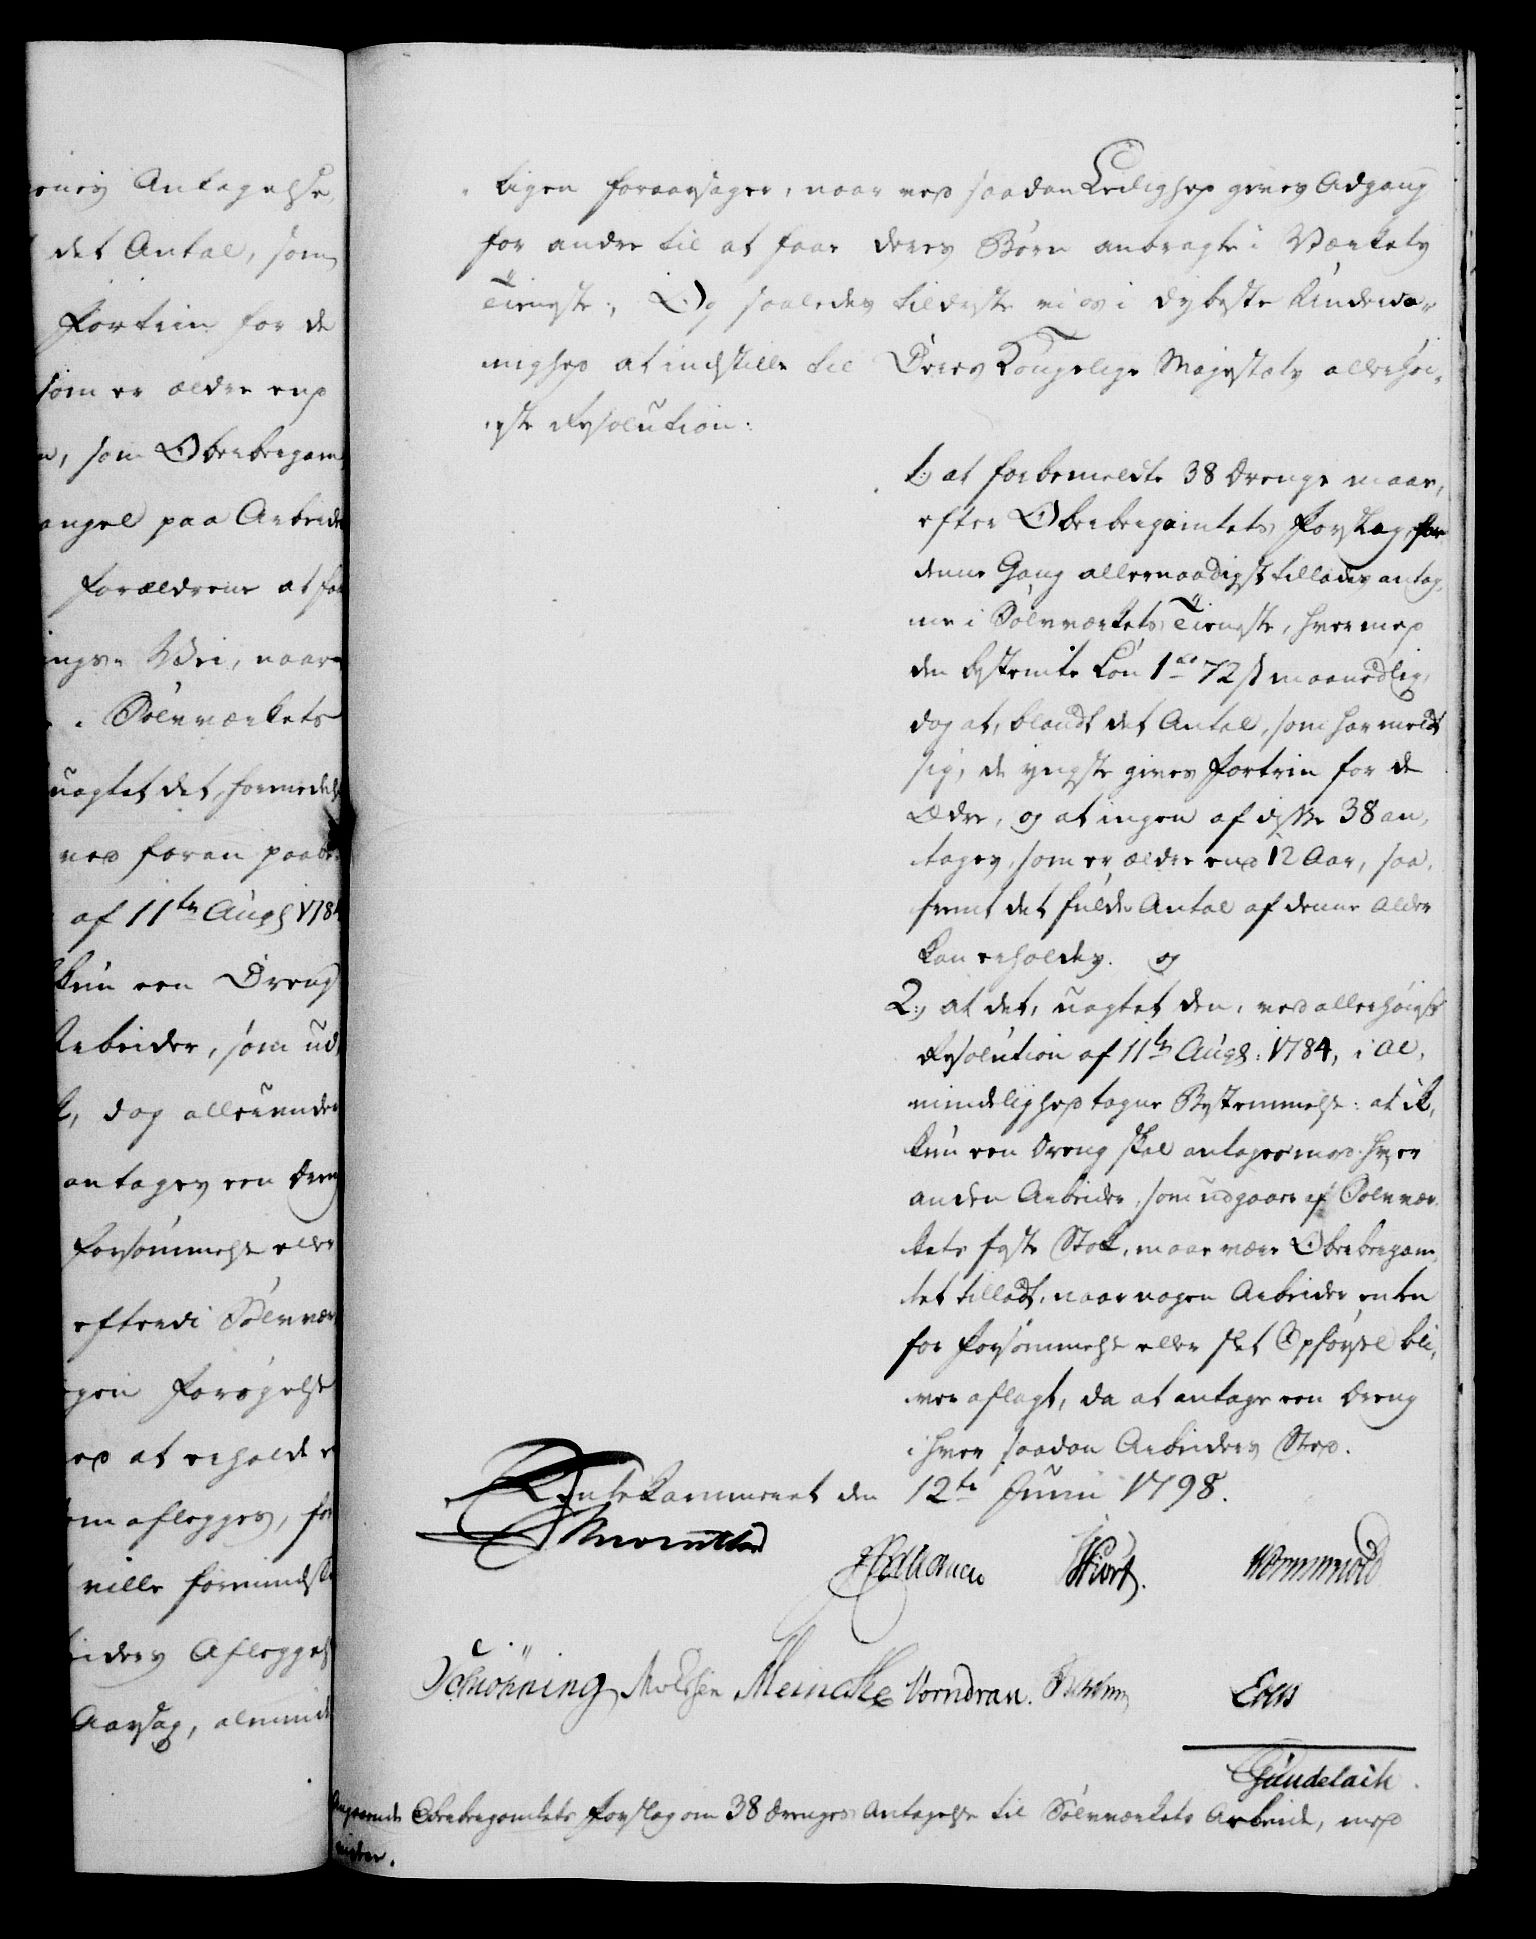 enes Antagelse,
det Antal, som
Fortrin for de
som er ældre end
n, som Oberbergam
angel paa Arbeide
Forældrene at faa
ings Vei, naar
i Sølvværkets
uagtet det, formedelst
ved foran paabe
af 11te Aug: 1784
kun een Dreng
Arbeider, som ud
k, dog allerunder
antages een Dreng
Forsømmelse eller
efterdi Sølvvær
gen Forøgelse
ved at erholde e
om aflegges, for
ville formindske
eiders Afleggelse
Aarsag, almind
ligen foraarsager, naar ved saadan Leilighed gives Adgang
for andre til at faae deres Børn anbragte i Værkets
Tieneste; Og saaledes tilderste vi os i dybeste Underda-
nighed at indstille til Deres Kongelige Majestæts allerhøi-
este Resolution:
1.) at forbemeldte 38 Drenge maae,
efter Oberbergamtets Forslag, for
denne Gang allernaadigst tillades antag-
ne i Sølvværkets Tieneste, hver med
den bestemte Løn 1 rd 72 s maanedlig,
dog at, blandt det Antal, som har meldt
sig, de yngste gives Fortrin for de
Ældre, og at ingen af disse 38 an-
tages, som er ældre end 12 Aar, saa-
fremt det fulde Antal af denne Alder
kan erholdes. og
2.) at det, uagtet den, ved allerhøieste
Resolution af 11te Aug: 1784, i Al-
mindelighed tagne Bestemmelse: at ik-
kun een Dreng skal antages mod hver
anden Arbeider, som udgaaer af Sølvvær-
kets faste Stok, maae være Oberbergam-
tet tilladt, naar nogen Arbeider enten
for Forsømmelse eller slet Opførsel bli-
ver aflagt, da at antage een Dreng
i hver saadan Arbeiders Sted.
Rentekammeret den 12te Junii 1798.
Hiort. Wormskiold
Schønning Meincke Vorndran.
Gundelach.
Angaaende Oberbergamtets Forslag om 38 Drenges Antagelse til Sølvværkets Arbeide, med